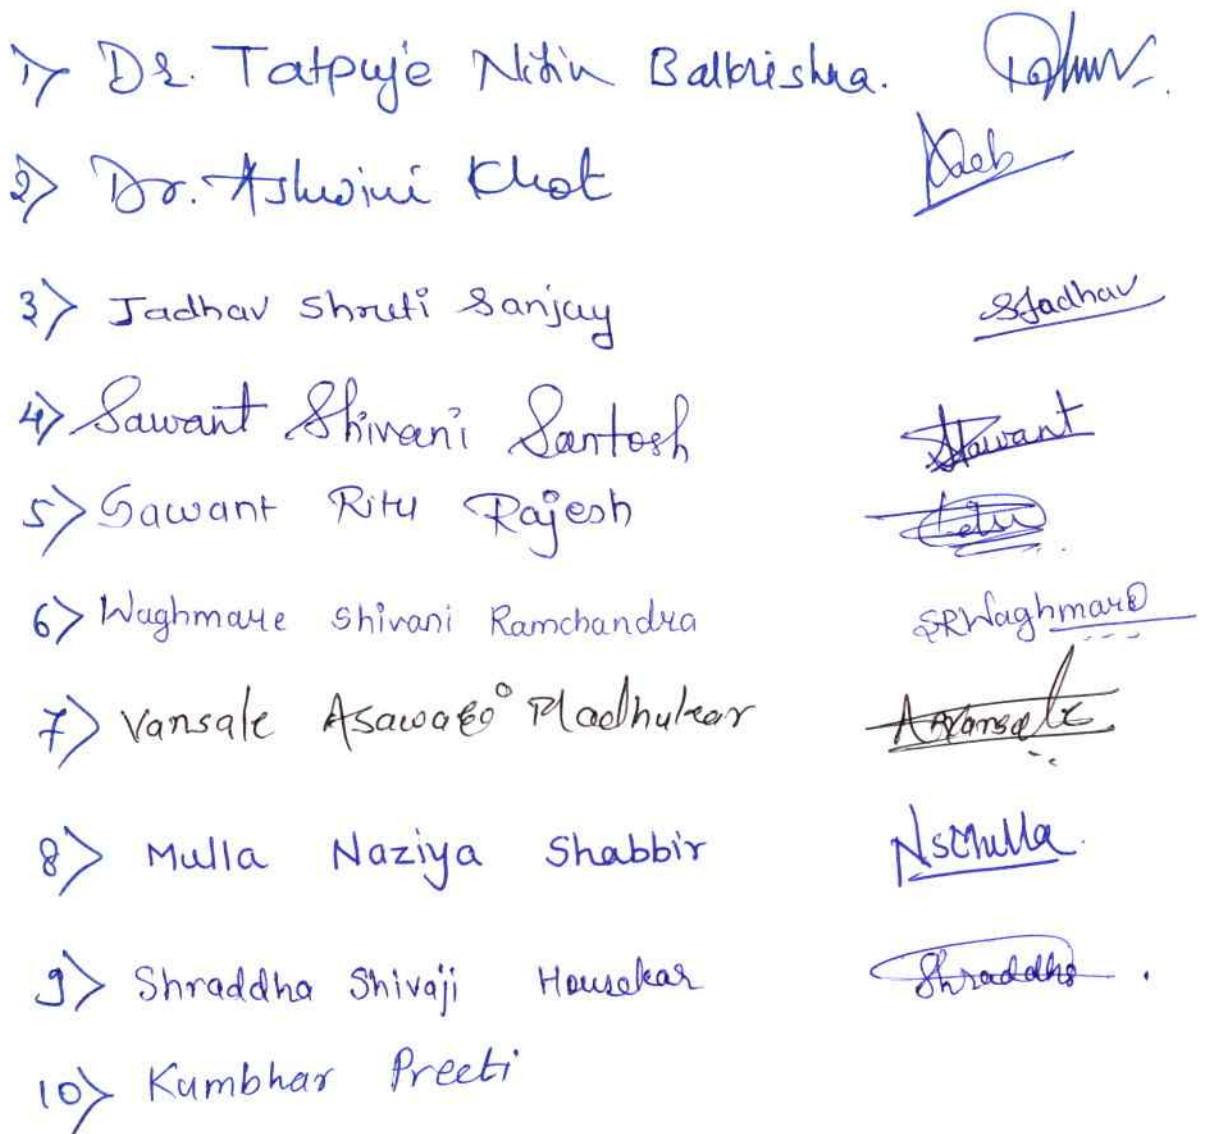 1) Dr. Tatpuje Nitin Balkrishna.
2) Dr. Ashwini Khot
3) Jadhav Shruti Sanjay SJadhav
4) Sawant Shivani Santosh SSawant
5) Sawant Ritu Rajesh
6) Waghmare Shivani Ramchandra SRWaghmare
7) Vansale Asawari Madhukar AMVansale
8) Mulla Naziya Shabbir NSMulla
9) Shraddha Shivaji Housekar Shraddha
10) Kumbhar Preeti